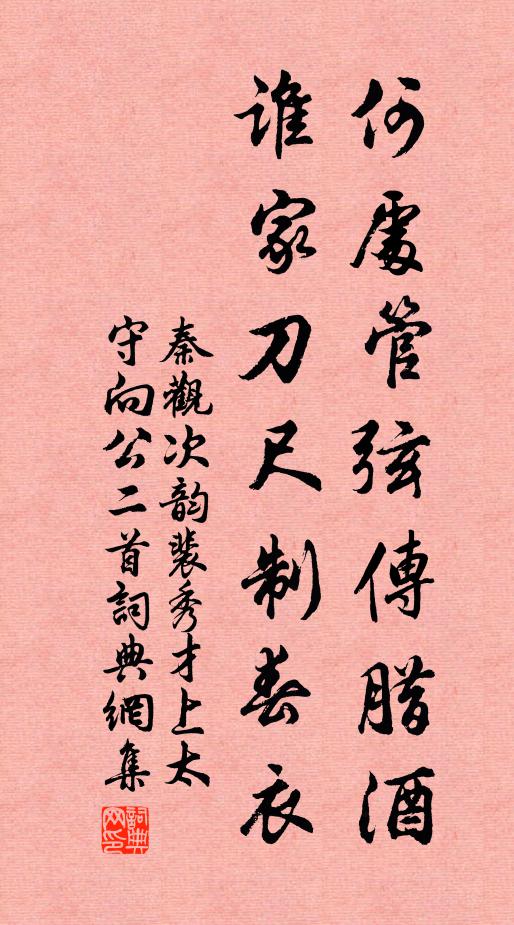 何處管弦傳臘酒
誰家刀尺制春衣
秦觀次韵裴秀才上太
守向公二首詞典網集
詞典网印